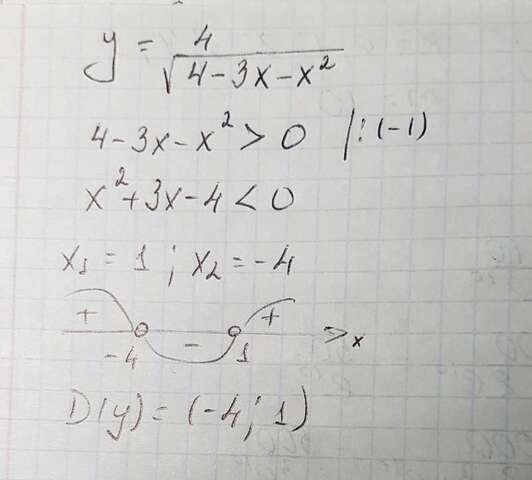 y = 4/√(4-3x-x²)
4-3x-x² > 0 |:(-1)
x²+3x-4 < 0
x₁ = 1 ; x₂ = -4
+ - + >x
-4 1
D(y) = (-4; 1)